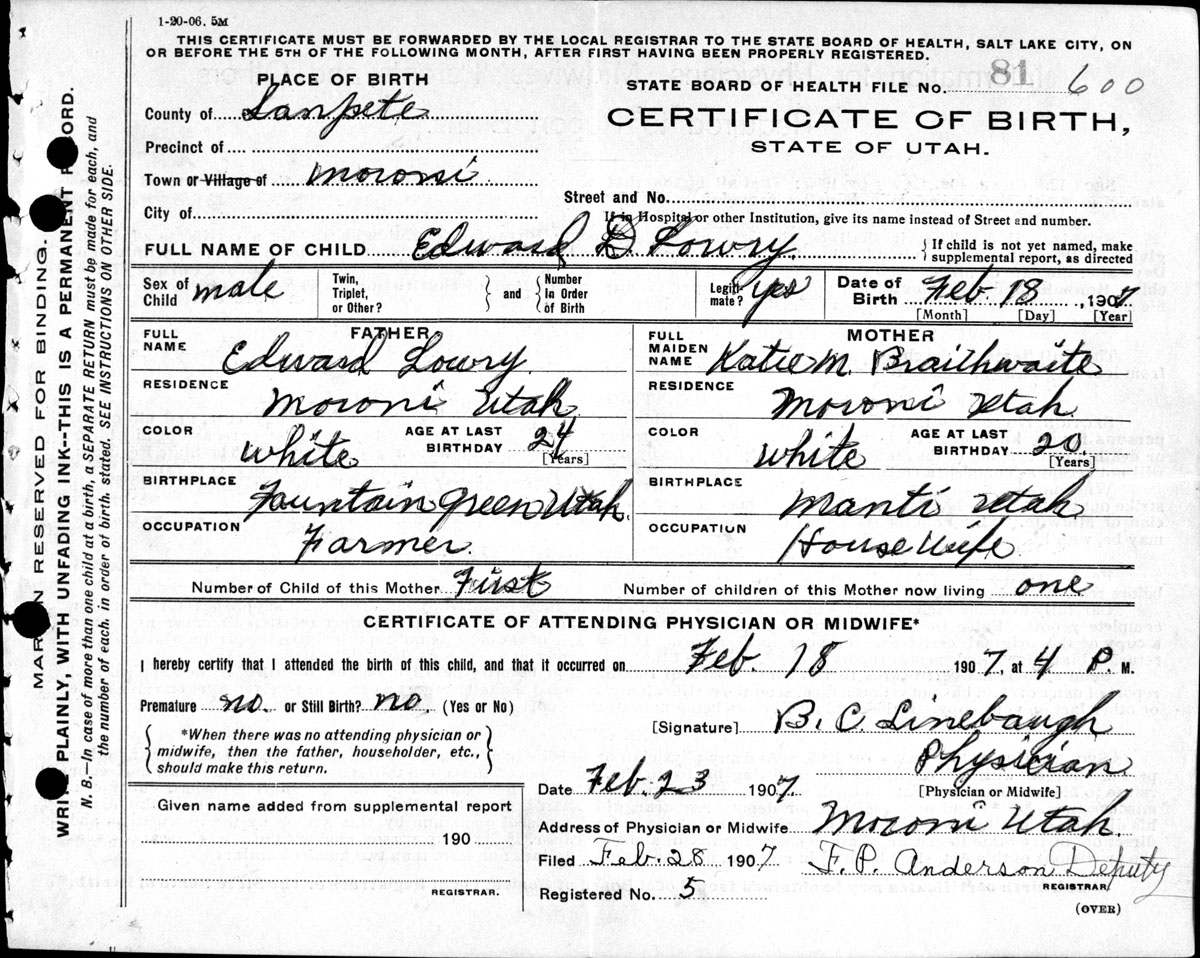 1-20-06. 5M
THIS CERTIFICATE MUST BE FORWARDED BY THE LOCAL REGISTRAR TO THE STATE BOARD OF HEALTH, SALT LAKE CITY, ON
OR BEFORE THE 5TH OF THE FOLLOWING MONTH, AFTER FIRST HAVING BEEN PROPERLY REGISTERED.
MARGIN RESERVED FOR BINDING.
WRITE PLAINLY, WITH UNFADING INK--THIS IS A PERMANENT RECORD.
N. B.—In case of more than one child at a birth, a SEPARATE RETURN must be made for each, and
the number of each, in order of birth, stated. SEE INSTRUCTIONS ON OTHER SIDE.
PLACE OF BIRTH
County of Sanpete
Precinct of
Town or Village of Moroni
City of
STATE BOARD OF HEALTH FILE No. 81 600
CERTIFICATE OF BIRTH,
STATE OF UTAH.
Street and No.
If in Hospital or other Institution, give its name instead of Street and number.
FULL NAME OF CHILD Edward D. Lowry. { If child is not yet named, make
supplemental report, as directed
Sex of Child male Twin, Triplet, or Other? } and { Number In Order of Birth Legiti-mate? yes Date of Birth Feb. 18, 1907
[Month] [Day] [Year]
FATHER MOTHER
FULL NAME Edward Lowry. FULL MAIDEN NAME Katie M. Braithwaite
RESIDENCE Moroni Utah RESIDENCE Moroni Utah
COLOR white AGE AT LAST BIRTHDAY 24 [Years] COLOR white AGE AT LAST BIRTHDAY 20 [Years]
BIRTHPLACE Fountain Green Utah. BIRTHPLACE Manti Utah
OCCUPATION Farmer. OCCUPATION House Wife
Number of Child of this Mother First Number of children of this Mother now living one
CERTIFICATE OF ATTENDING PHYSICIAN OR MIDWIFE*
I hereby certify that I attended the birth of this child, and that it occurred on Feb. 18 1907, at 4 P M.
Premature no. or Still Birth? no. (Yes or No)
{ *When there was no attending physician or
midwife, then the father, householder, etc.,
should make this return. }
[Signature] B. C. Linebaugh
Physician
[Physician or Midwife]
Date Feb. 23 1907.
Given name added from supplemental report
190
REGISTRAR.
Address of Physician or Midwife Moroni Utah.
Filed Feb. 28 1907 F. P. Anderson Deputy
REGISTRAR
Registered No. 5
(OVER)